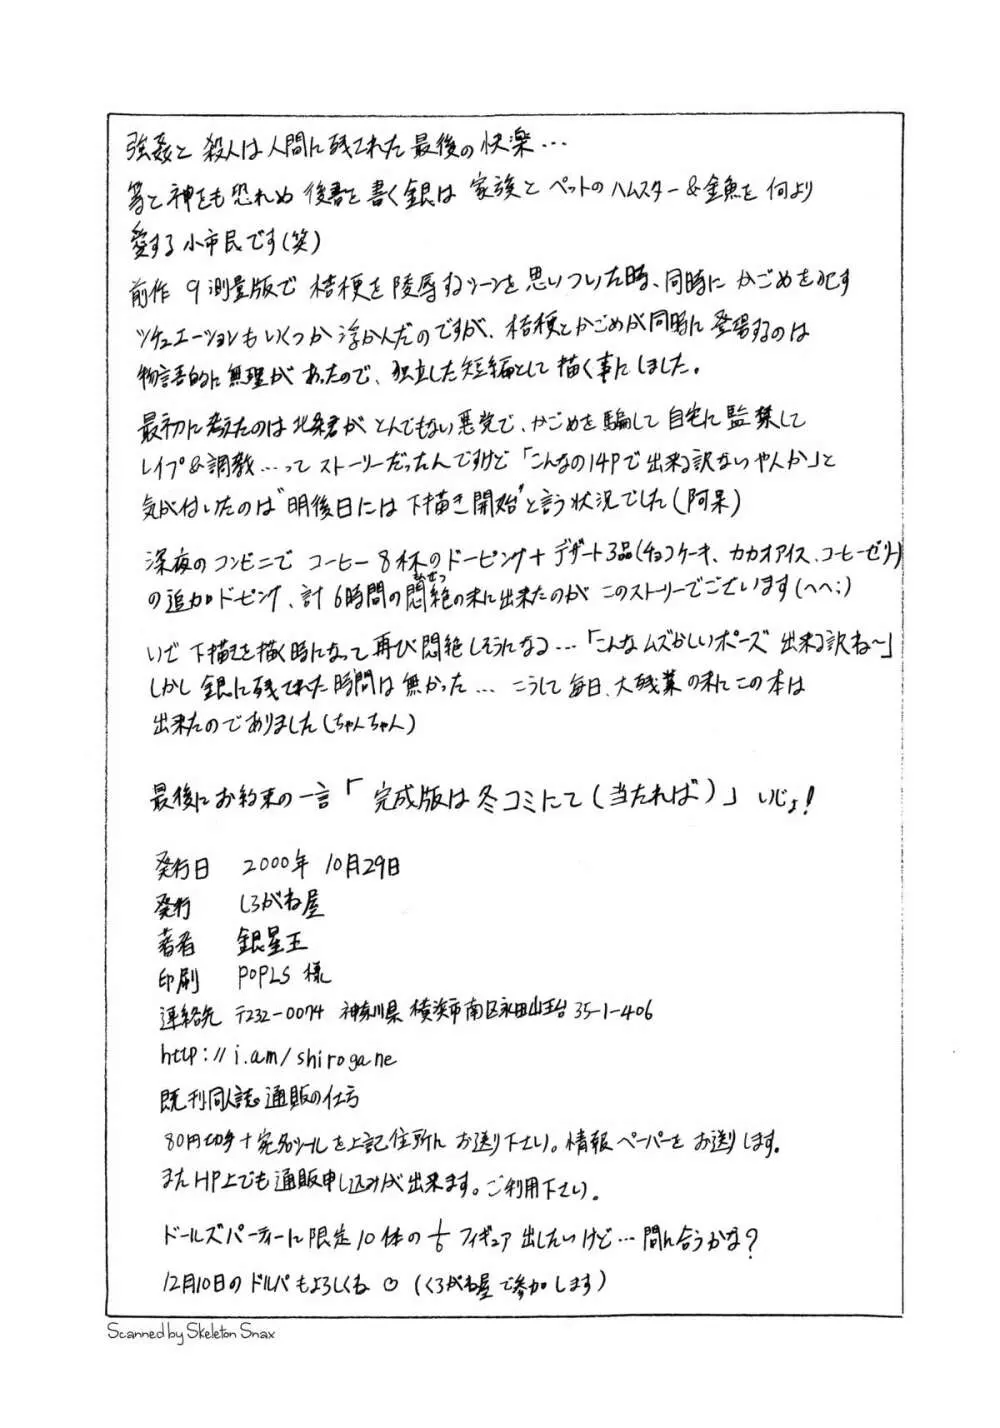 強姦と殺人は人間に残された最後の快楽…
等と神をも恐れぬ後書を書く銀は家族とペットのハムスター&金魚を何より
愛する小市民です(笑)
前作9測量版で桔梗を陵辱するシーンを思いついた時、同時にかごめを犯す
シチュエーションもいくつか浮かんだのですが、桔梗とかごめが同時に登場するのは
物語的に無理があったので、独立した短編として描く事にしました。
最初に考えたのは北条君がとんでもない悪党で、かごめを騙して自宅に監禁して
レイプ&調教…ってストーリーだったんですけど「こんなの14Pで出来る訳ないやんか」と
気が付いたのは"明後日には下描き開始"と言う状況でした(阿呆)
深夜のコンビニでコーヒー8杯のドーピング+デザート3品(チョコケーキ、カカオアイス、コーヒーゼリー)
の追加ドーピング、計6時間の悶絶の末に出来たのがこのストーリーでございます(へへ;)
いざ下描きを描く時になって再び悶絶しそうになる…「こんなムズかしいポーズ出来る訳ね〜」
しかし銀に残された時間は無かった…こうして毎日、大残業の末にこの本は
出来たのでありました(ちゃんちゃん)
最後にお約束の一言「完成版は冬コミにて(当たれば)」いじょ!
発行日 2000年10月29日
発行 しろがね屋
著者 銀星王
印刷 POPLS 様
連絡先 〒232-0074 神奈川県横浜市南区永田山王台35-1-406
http://i.am/shirogane
既刊同人誌通販の仕方
80円切手+宛名シールを上記住所にお送り下さい。情報ペーパーをお送りします。
またHP上でも通販申し込みが出来ます。ご利用下さい。
ドールズパーティーに限定10体の1/6フィギュア出したいけど…間に合うかな?
12月10日のドルパもよろしくね♡(くろがね屋で参加します)
Scanned by Skeleton Snax